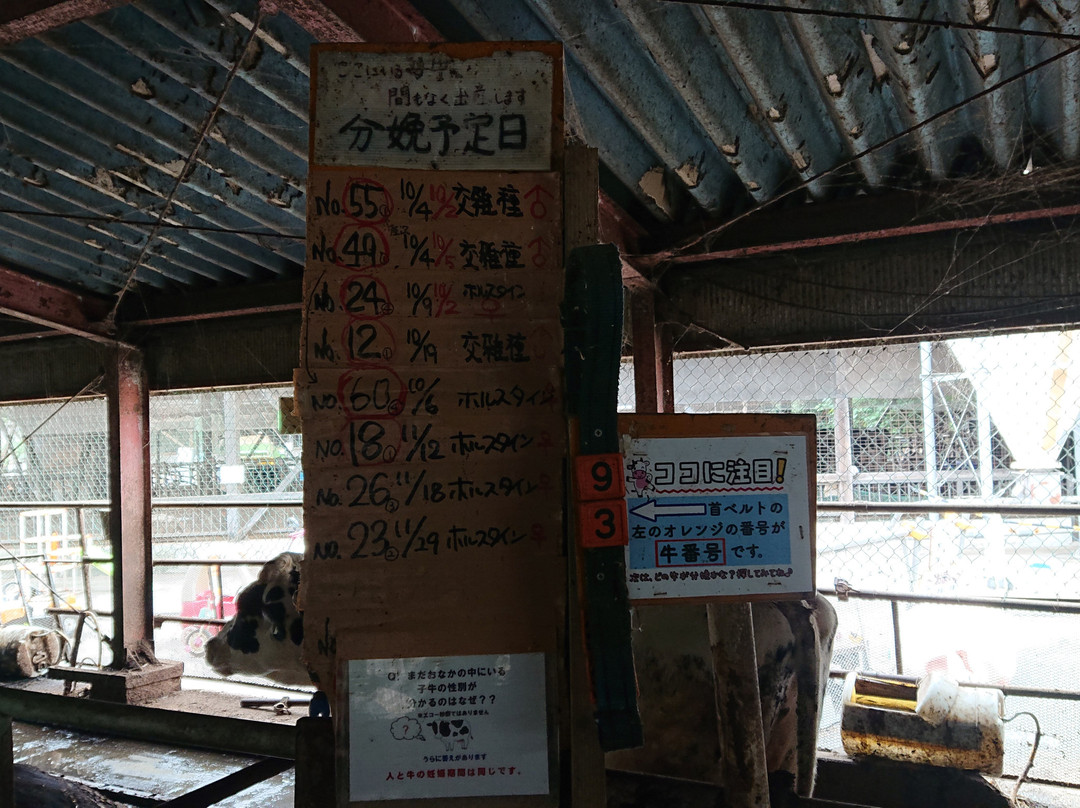 ここにいる
間もなく出産します
分娩予定日
No. 55 10/4 10/2 交雑種 ♂
No. 49 10/4 10/5 交雑種 ♂
No. 24 10/9 10/2 ホルスタイン ♀
No. 12 10/19 交雑種
NO. 60 10/6 ホルスタイン
NO. 18 11/12 ホルスタイン ♀
No. 26 11/18 ホルスタイン ♀
NO. 23 11/29 ホルスタイン ♀
9
3
ココに注目!
首ベルトの
左のオレンジの番号が
牛番号です。
次は、どの牛が分娩かな?探してみてね♪
Q! まだおなかの中にいる
子牛の性別が
分かるのはなぜ??
※エコー診断ではありません
?
うらに答えがあります
人と牛の妊娠期間は同じです。